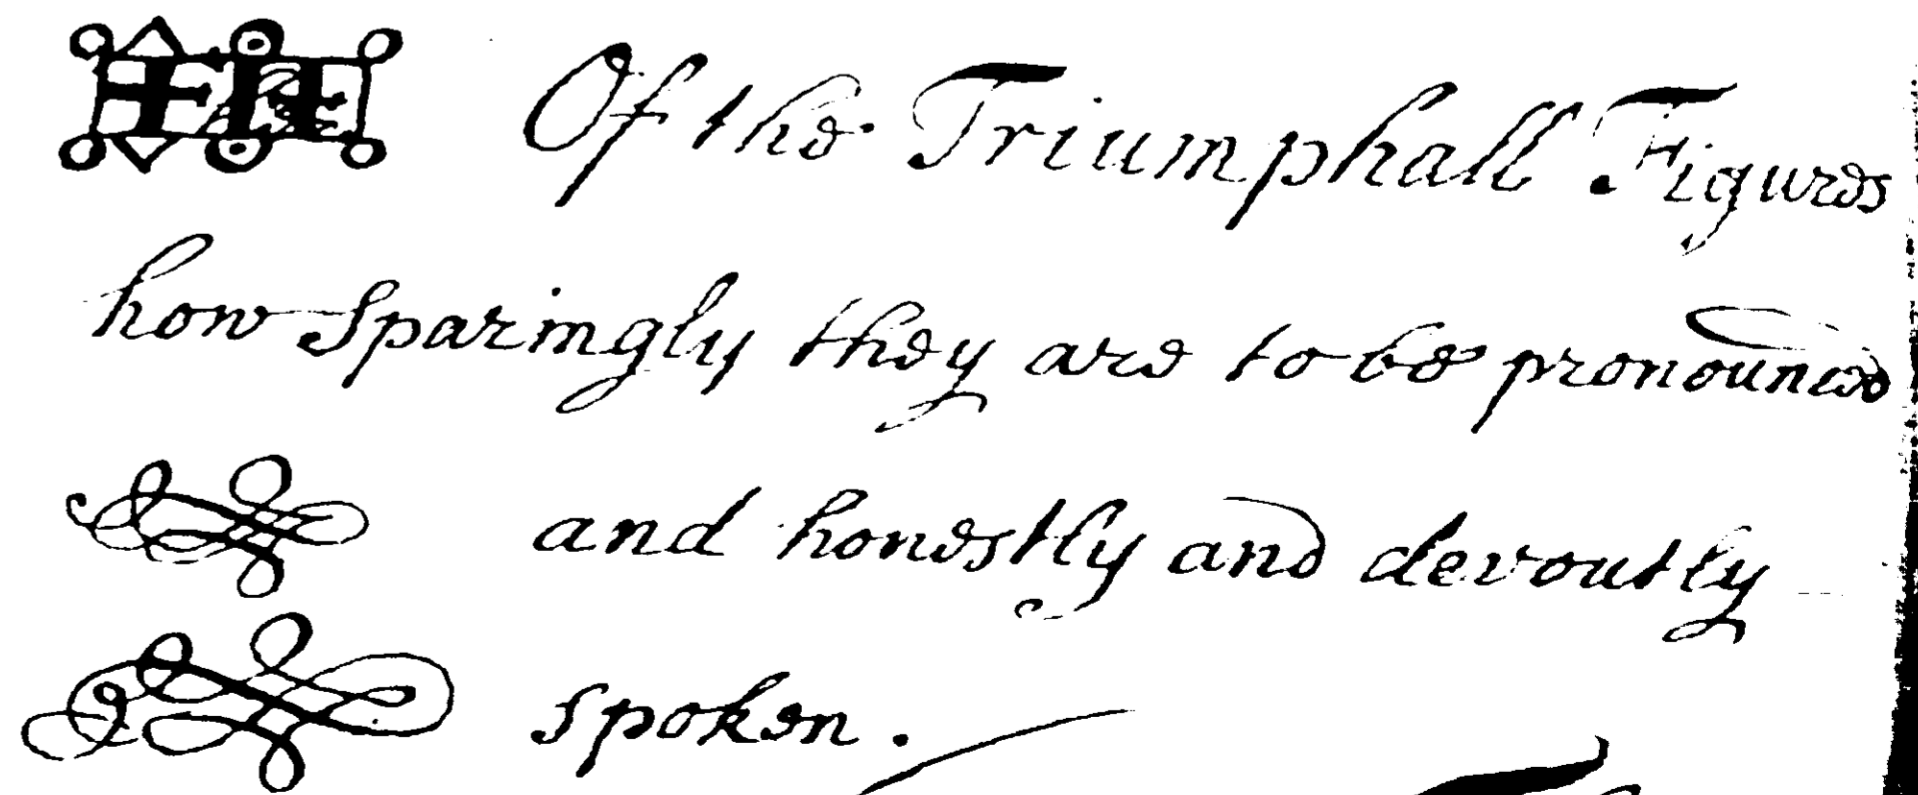 Of the Triumphall Figures
how sparingly they are to be pronounced
and honestly and devoutly
spoken.